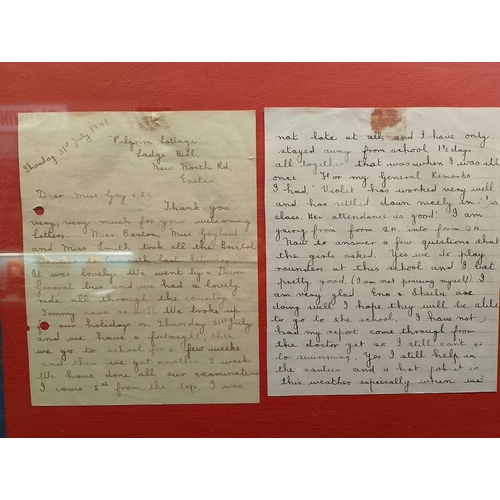 Thursday 31st July 1941
Pilgrim Cottage
Lodge Hill,
New North Rd,
Exeter
Dear Miss Gay &
Thank you
very, very much for your welcoming
letters. Miss Banton, Miss England
and Miss Smith took all the Bristol
to with last
It was lovely. We went by a Devon
General bus and we had a lovely
ride all through the country
Tommy came as well We broke up
for our holiday on Thursday 31st July
and we have a fortnight, then
we go to school for a few weeks
and then we get another 2 weeks
We have done all our examinations
I came 5rd from the top. I was
not late at all, and I have only
stayed away from school 1½ days
all together that was when I was ill
once For my General Remarks
I had, Violet has worked very well
and has settl'd down nicely in
class. Her attendance is good. I am
going from form 2A. into form 3A
Now to answer a few questions that
the girls asked. Yes we do play
rounders at this school and I bat
pretty good (I am not praising myself) I
am very glad Ena & Sheila are
doing well I hope they will be able
to go to the school. I have not
had my report come through from
the doctor yet so I still can't
to swimming. Yes I still help in
the canteen and a hot job it is
this weather especially when we